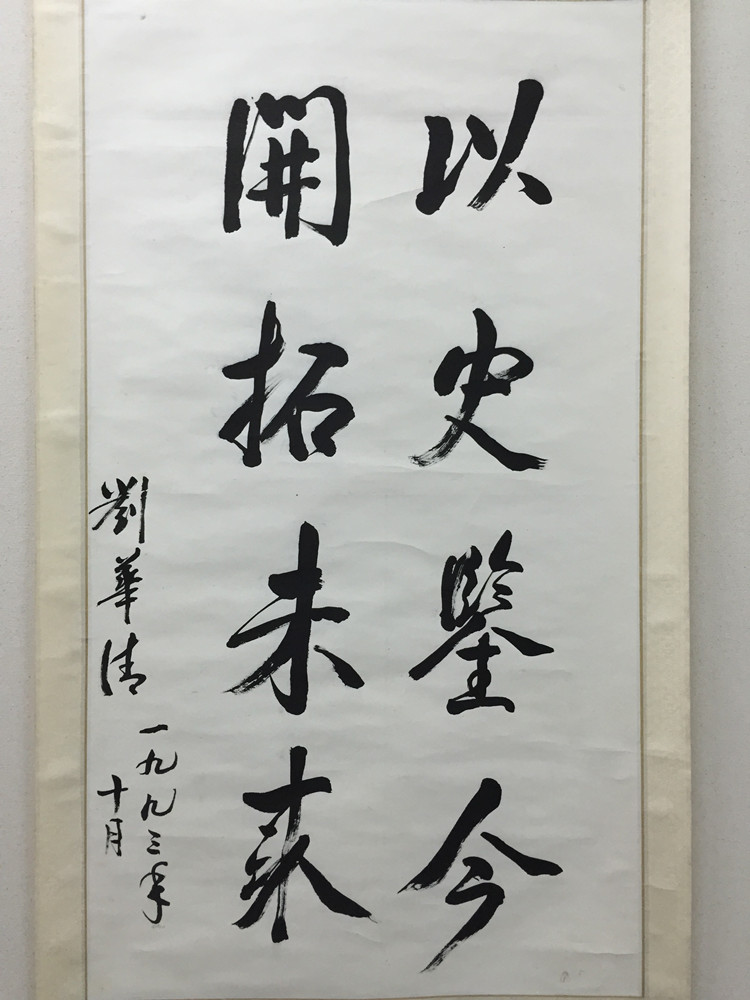 以史鑒今
開拓未來
劉華清
一九九三年
十月